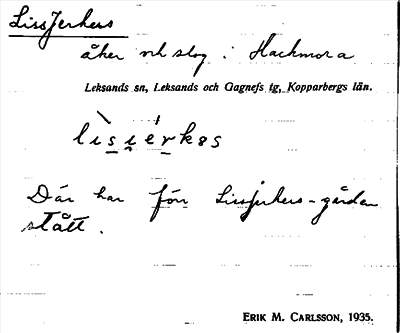 LissJerkers
åker och slog i Hackmora
Leksands sn, Leksands och Gagnefs tg, Kopparbergs län.
lisierkəs
Där har förr Lissjerkers-gården
stått.
ERIK M. CARLSSON, 1935.